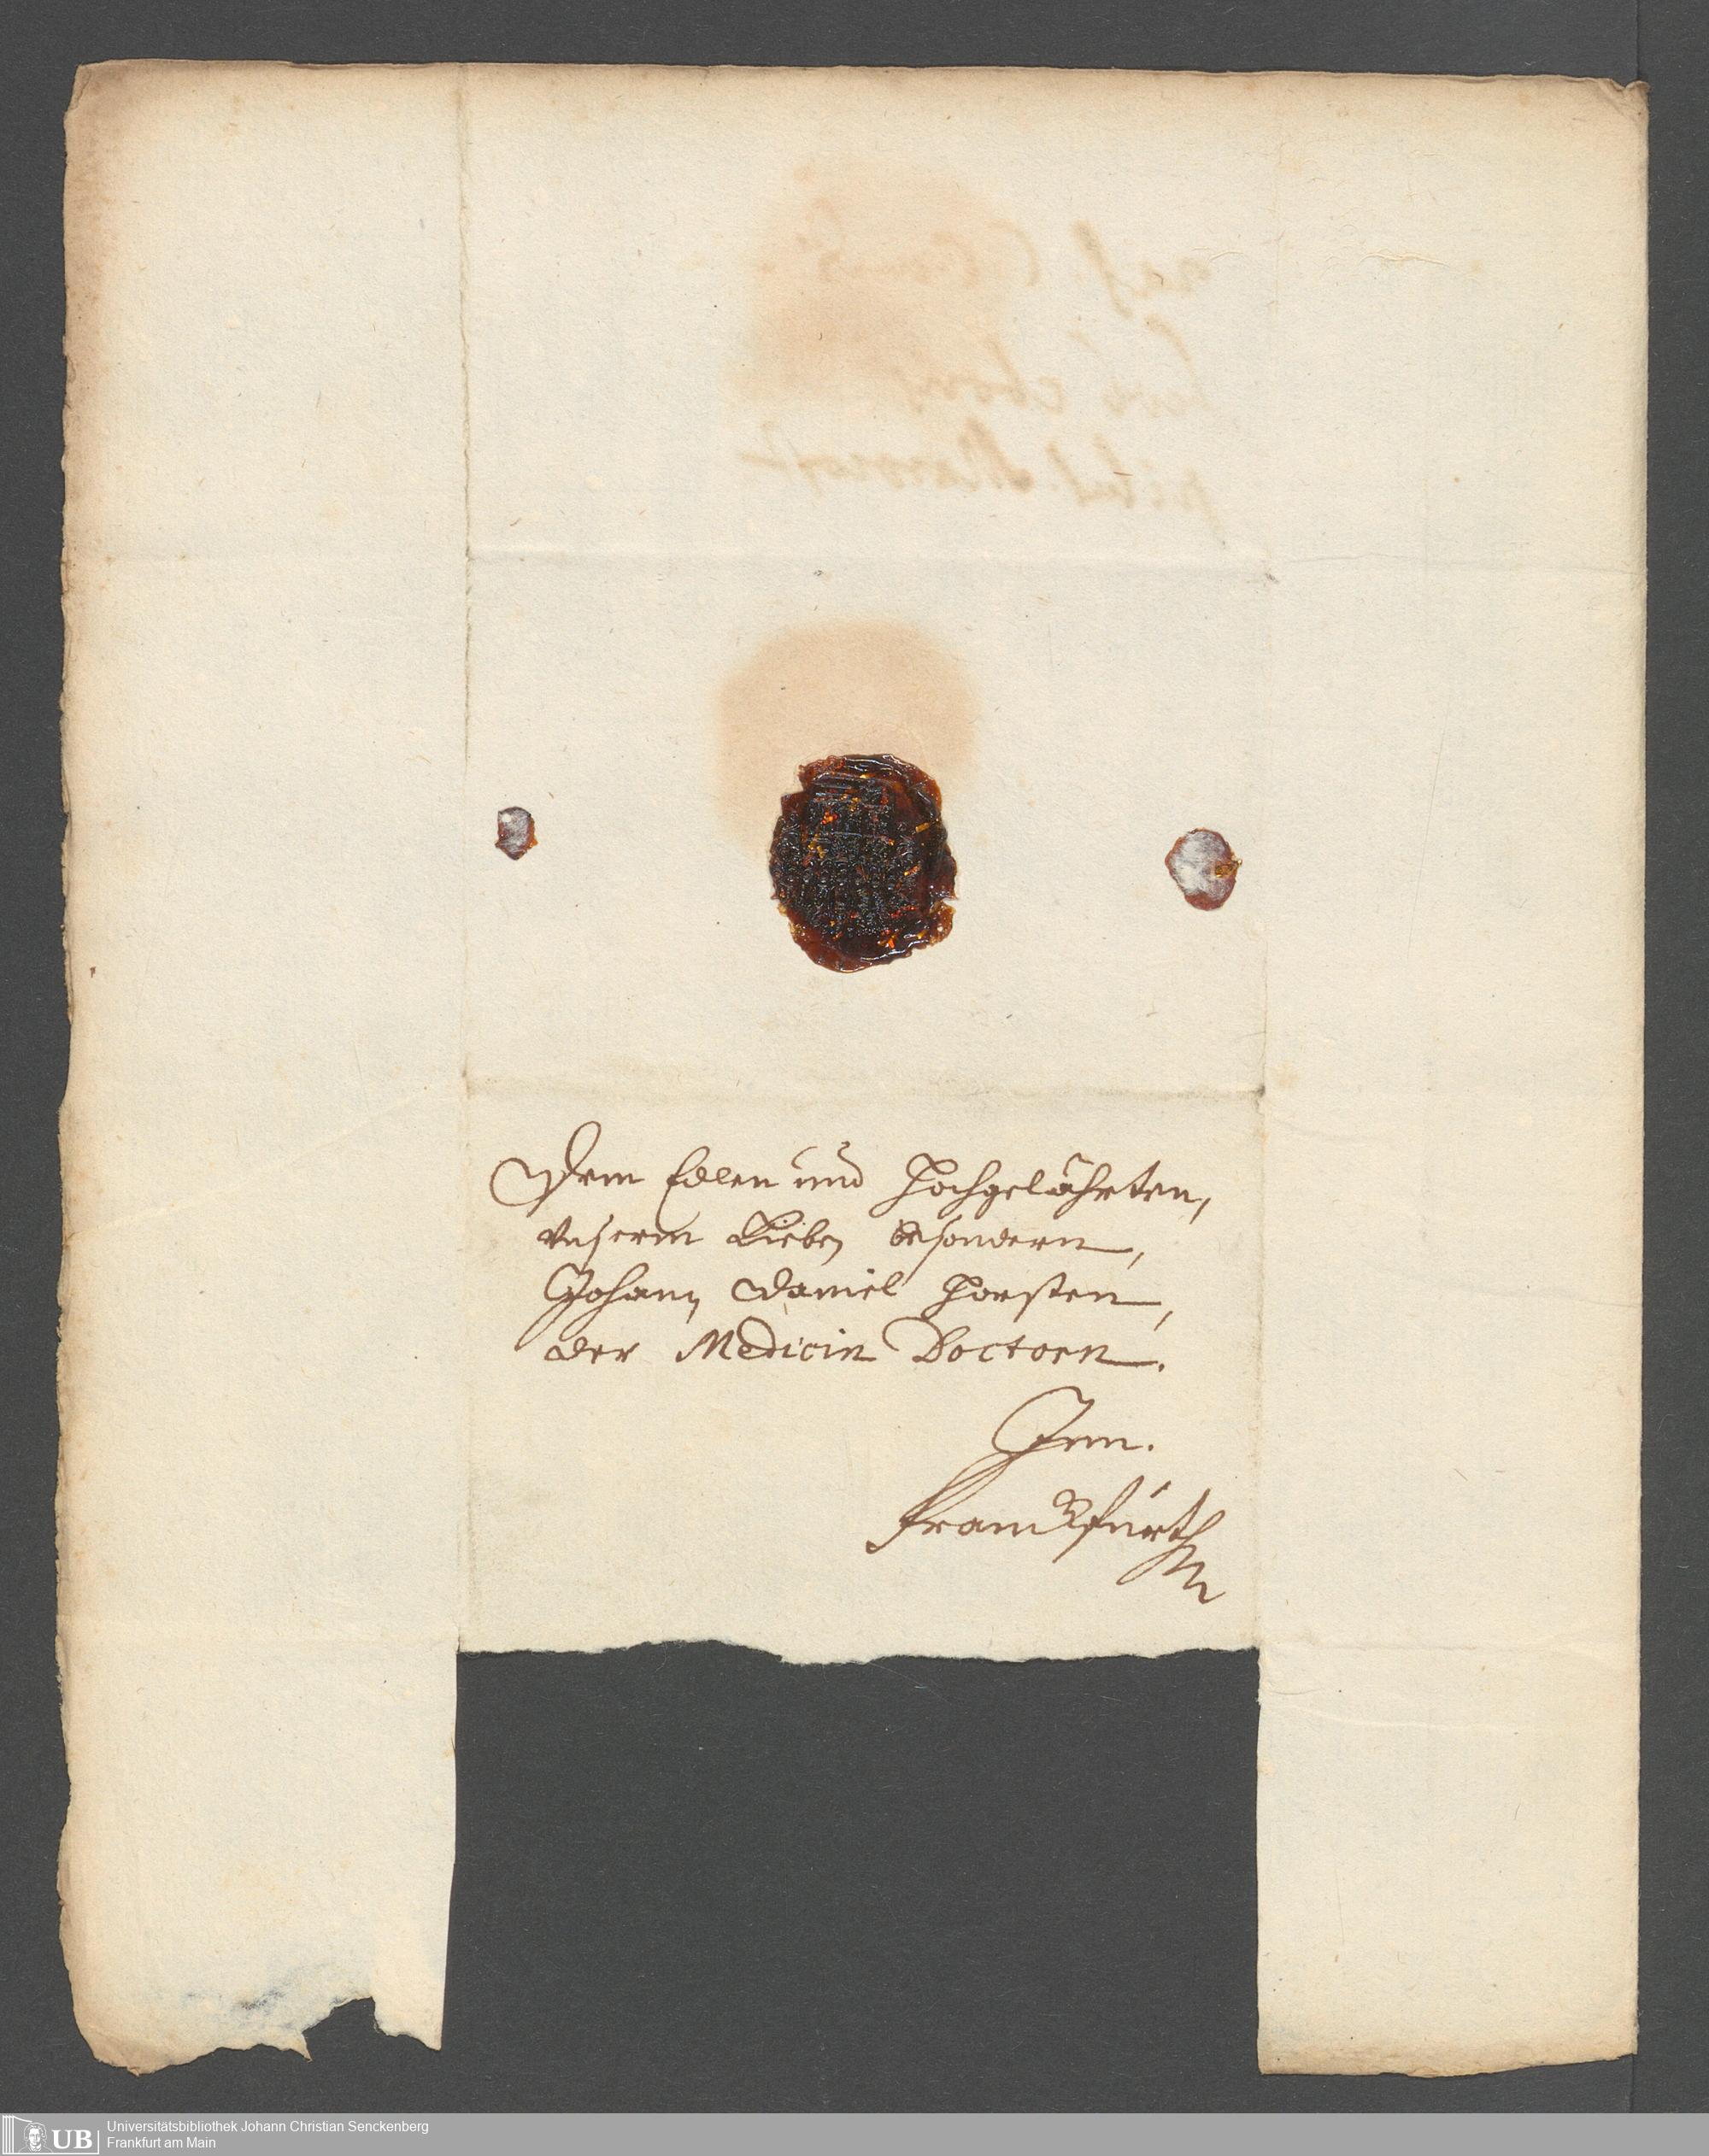 Dem Edlen und Hochgelährten,
Vnserm Lieben besondern,
Johann Daniel Horsten,
der Medicin Doctorn.
Inn.
Franckfürth
UB
Universitätsbibliothek Johann Christian Senckenberg
Frankfurt am Main